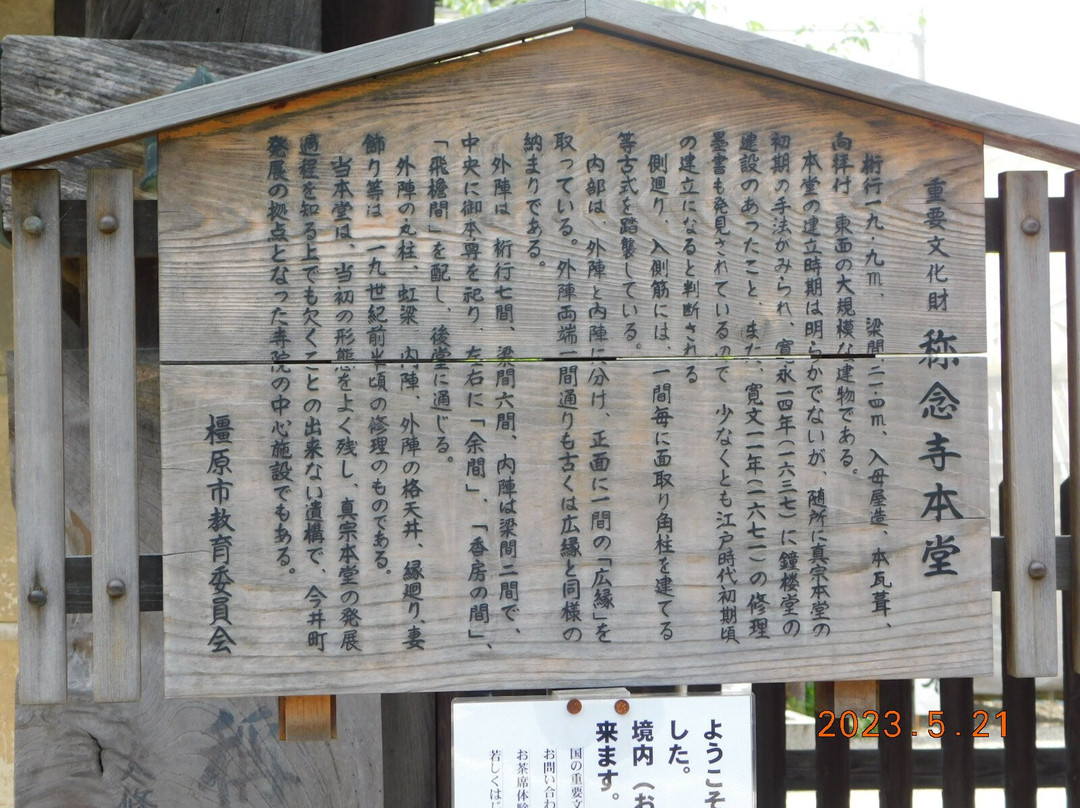 重要文化財 称念寺本堂
桁行一九・九m、梁間二一・四m、入母屋造、本瓦葺、
向拝付、東面の大規模な建物である。
本堂の建立時期は明らかでないが、随所に真宗本堂の
初期の手法がみられ、寛永一四年(一六三七)に鐘楼堂の
建設のあったこと、また、寛文一一年(一六七一)の修理
墨書も発見されているので 少なくとも江戸時代初期頃
の建立になると判断される
側廻り、入側筋には、一間毎に面取り角柱を建てる
等古式を踏襲している。
内部は、外陣と内陣に分け、正面に一間の「広縁」を
取っている。外陣両端一間通りも古くは広縁と同様の
納まりである。
外陣は 桁行七間、梁間六間、内陣は梁間二間で、
中央に御本尊を祀り、左右に「余間」、「香房の間」、
「飛檐間」を配し、後堂に通じる。
外陣の丸柱、虹梁 内陣、外陣の格天井、縁廻り、妻
飾り等は 一九世紀前半頃の修理のものである。
当本堂は、当初の形態をよく残し、真宗本堂の発展
過程を知る上でも欠くことの出来ない遺構で、今井町
発展の拠点となった寺院の中心施設でもある。
橿原市教育委員会
ようこそ
した。
境内(お
来ます。
国の重要文
お問い合わ
お茶席体験
若しくはじ
2023.5.21